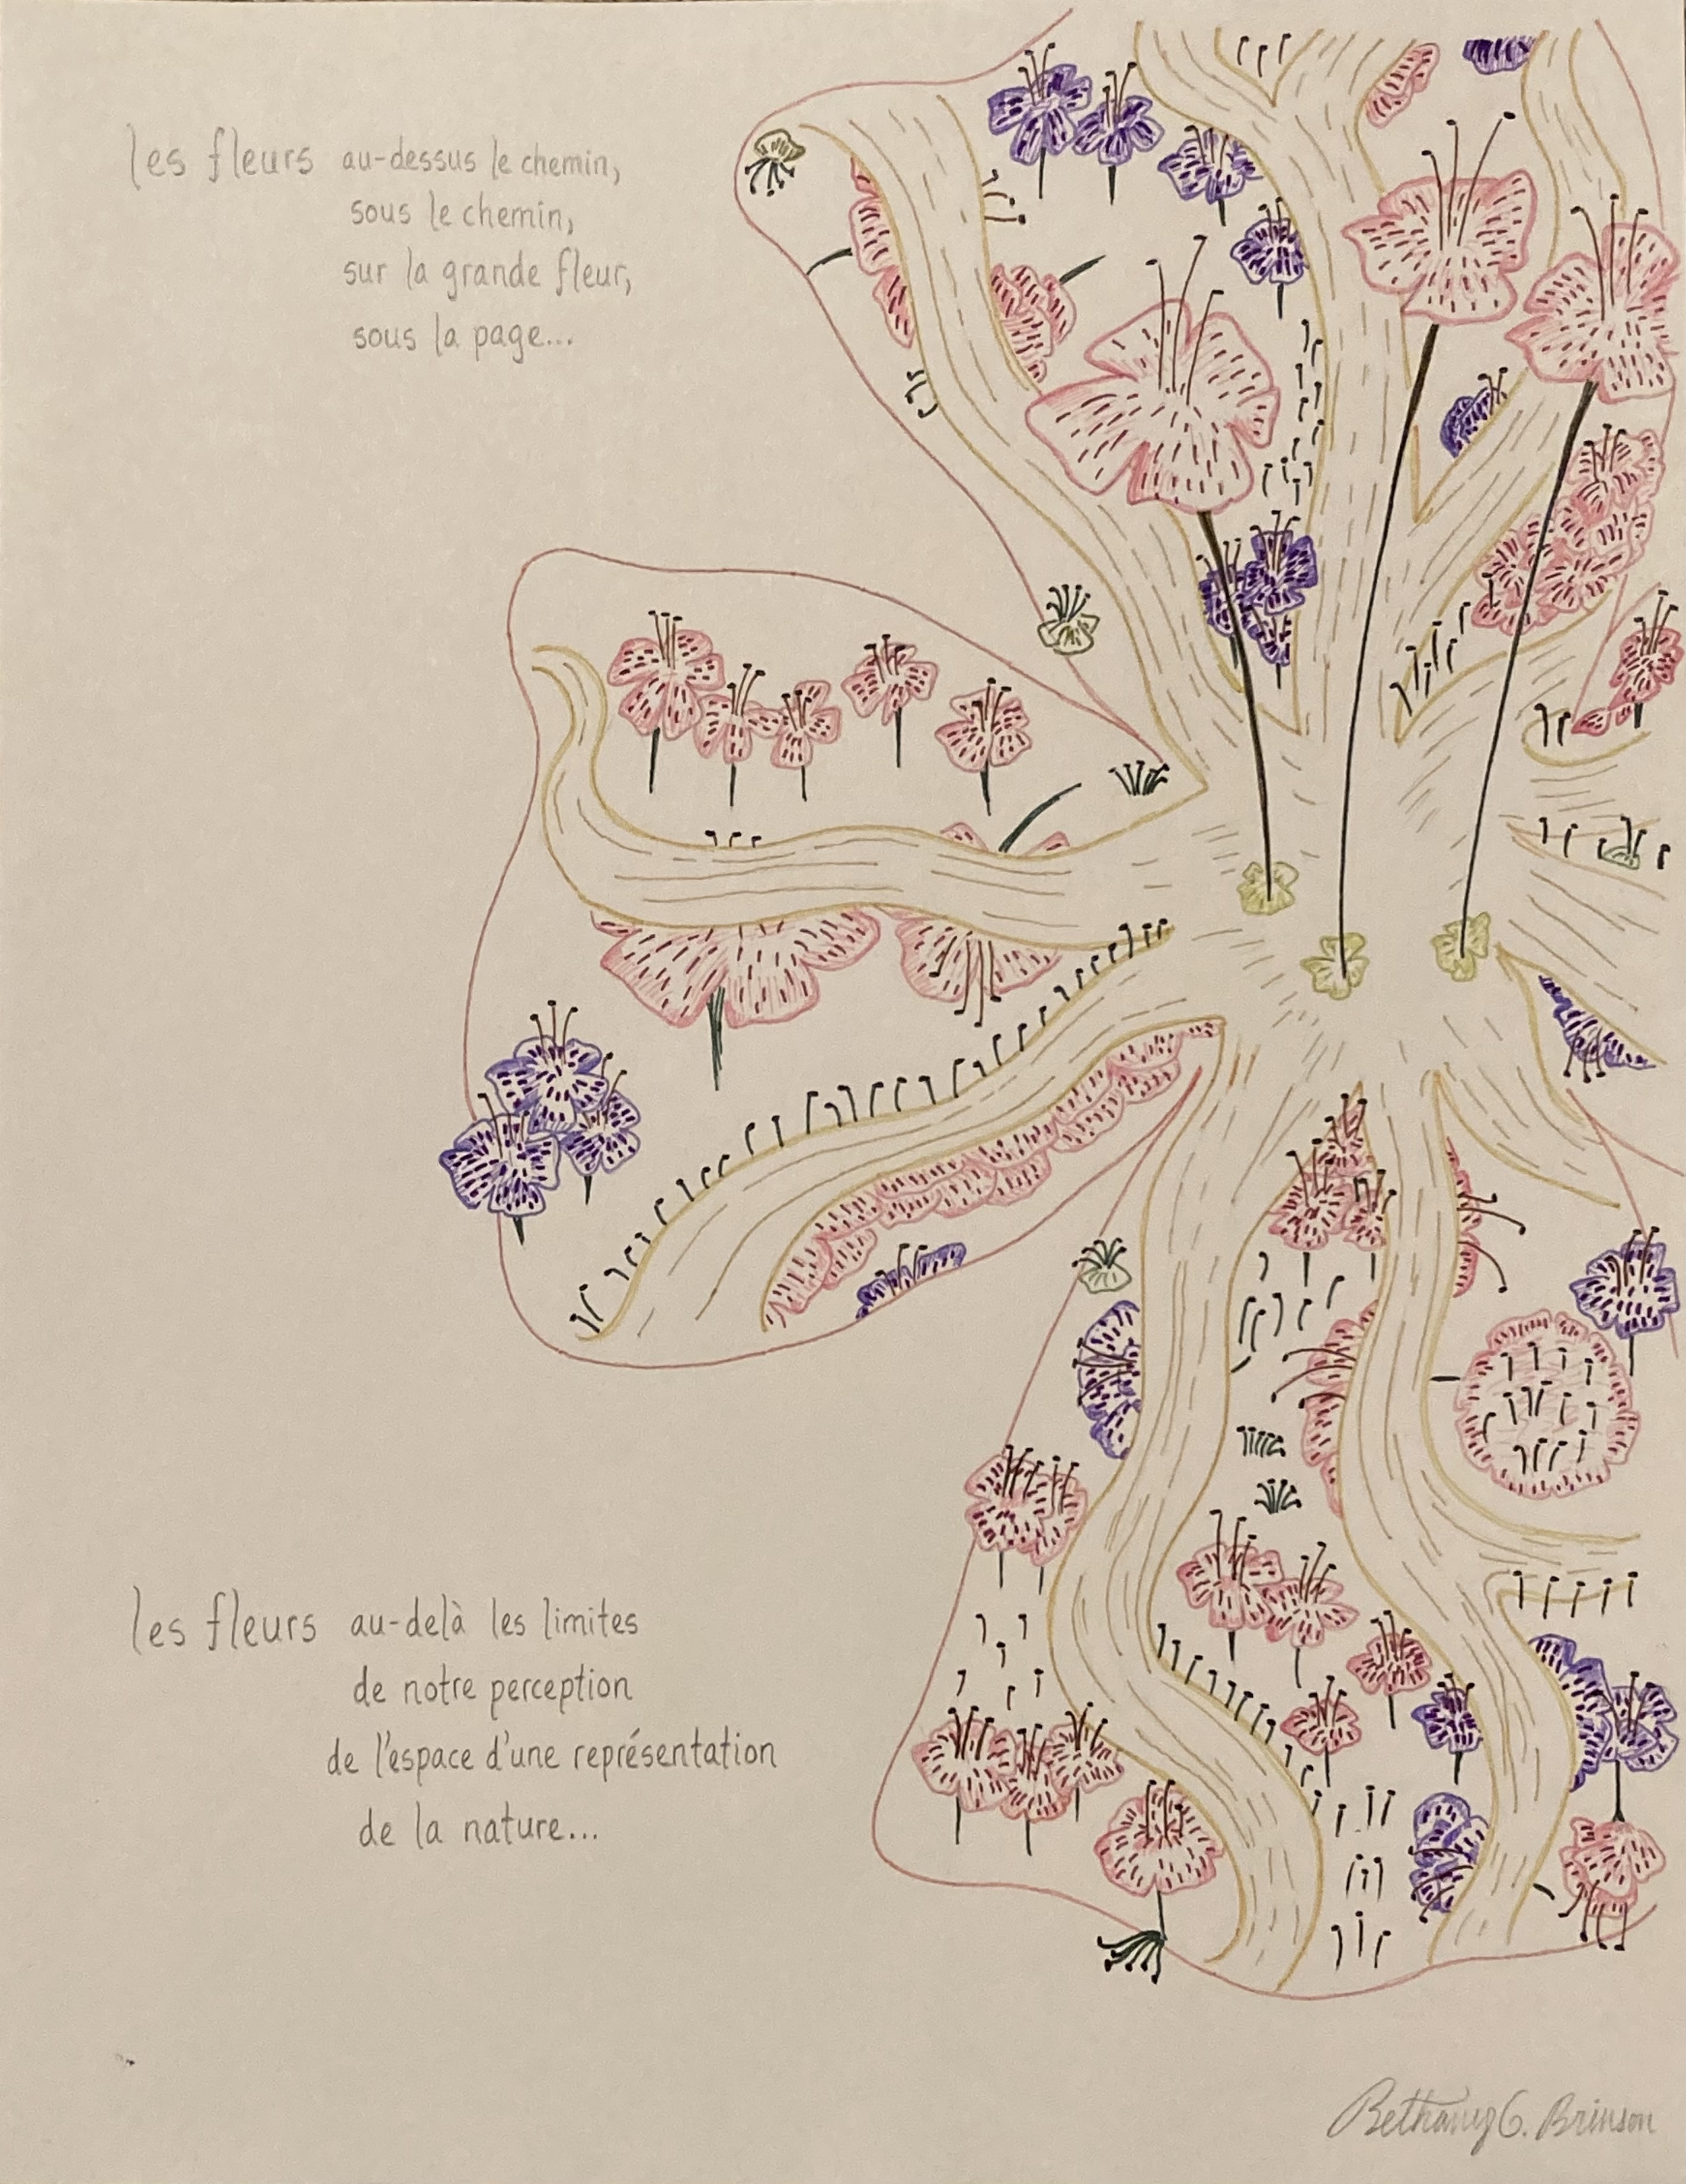 les fleurs au-dessus le chemin,
sous le chemin,
sur la grande fleur,
sous la page...
les fleurs au-delà les limites
de notre perception
de l'espace d'une représentation
de la nature...
Bethany G. Brinson